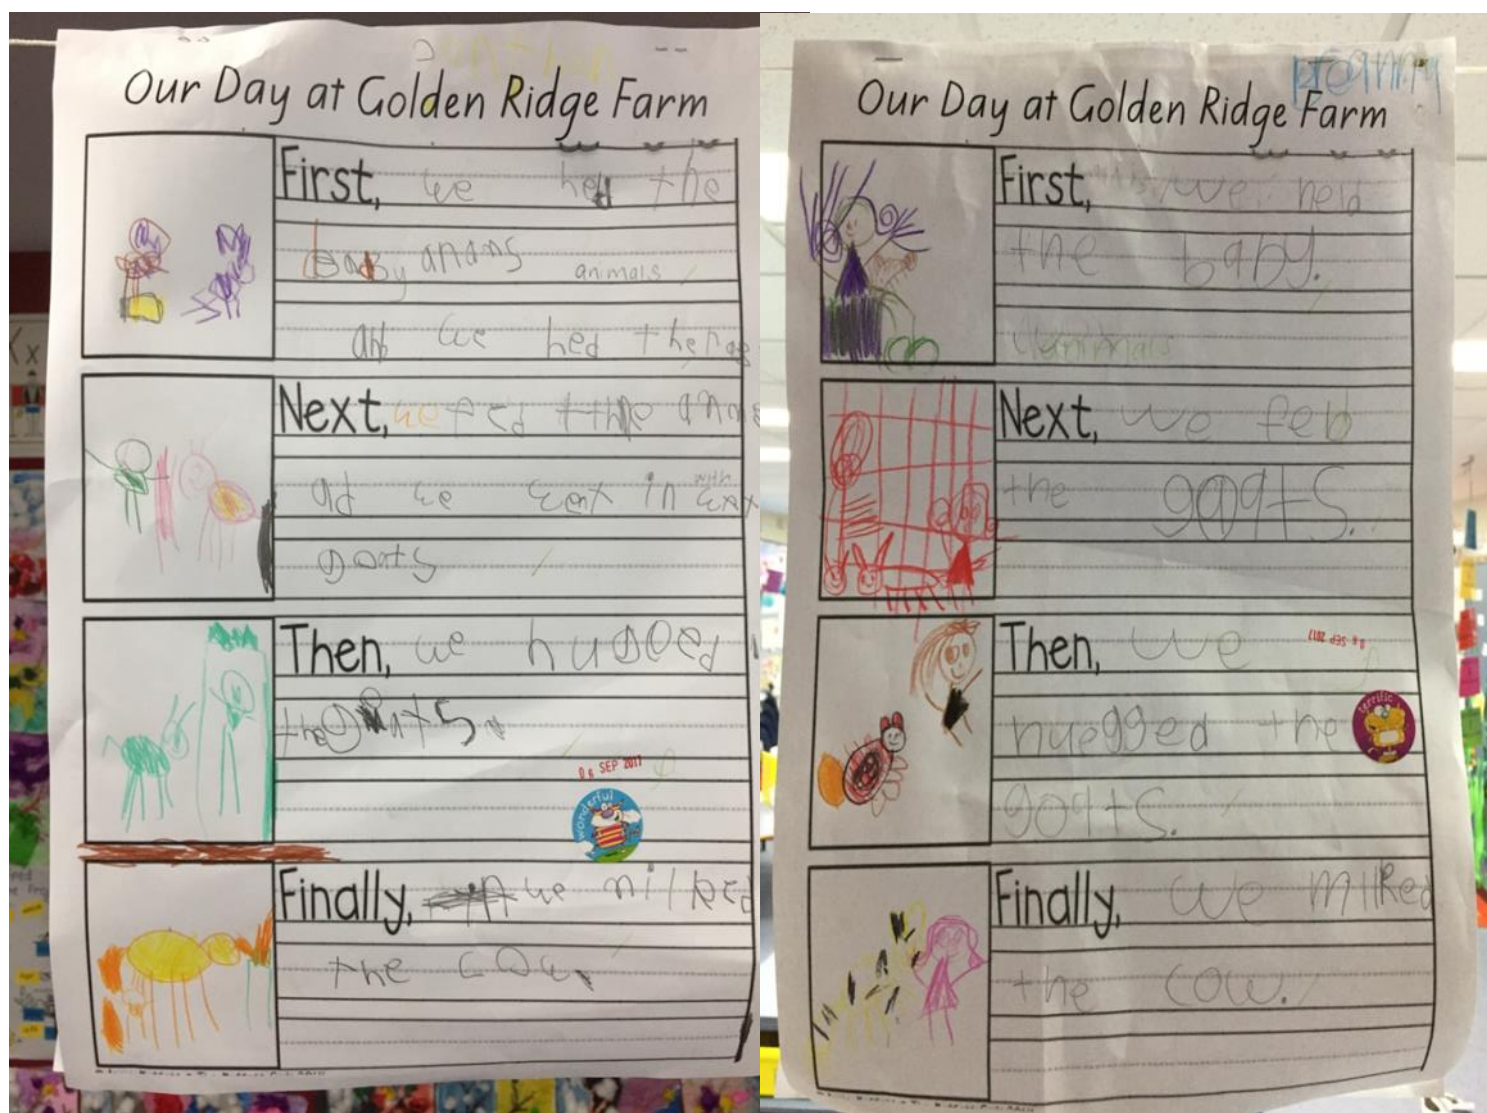 Our Day at Golden Ridge Farm
First, we held the
baby anans animals
and we hed the
Next, we fed the
ad we went in with
goats
Then, we hugged
the goats.
06 SEP 2017
wonderful
Finally, we milked
the cow.
Our Day at Golden Ridge Farm
First, we held
the baby.
animals
Next, we fed
the goats.
Then, we
06 SEP 2017
hugged the
terrific
goats.
Finally, we milked
the cow.